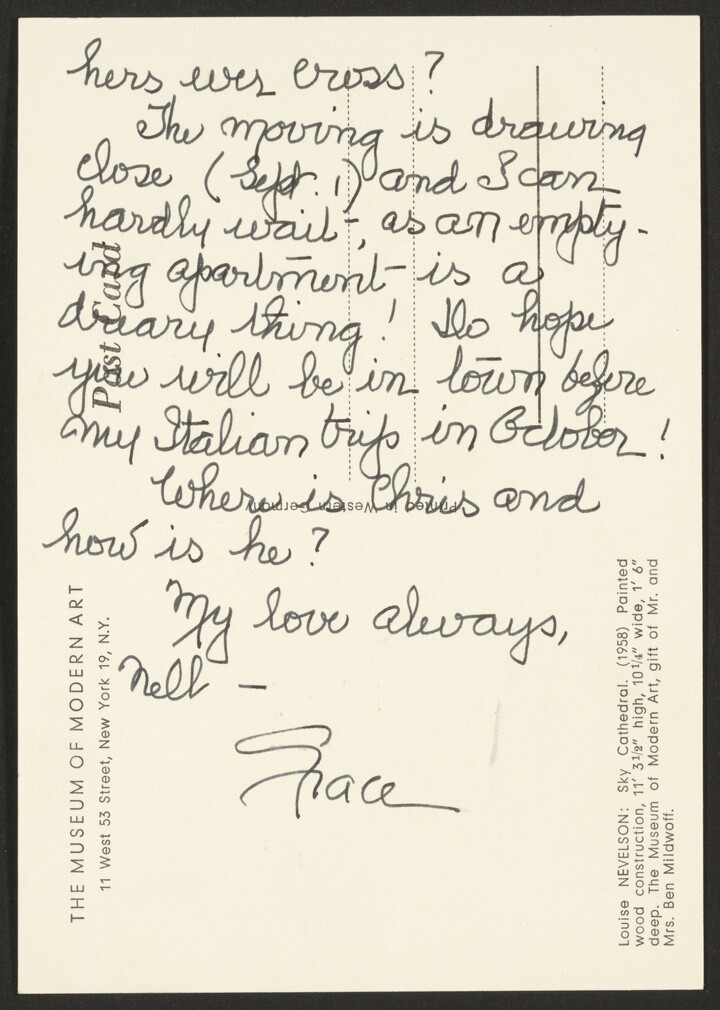 hers ever cross?
The moving is drawing
close (Sept. 1) and I can
hardly wait, as an empty-
ing apartment is a
dreary thing! Do hope
you will be in town before
my Italian trip in October!
Where is Chris and
how is he?
My love always,
Nell —
Grace
Post Card
Printed in Western Germany
THE MUSEUM OF MODERN ART
11 West 53 Street, New York 19, N.Y.
Louise NEVELSON: Sky Cathedral. (1958) Painted
wood construction, 11' 3 1/2" high, 10 1/4" wide, 1' 6"
deep. The Museum of Modern Art, gift of Mr. and
Mrs. Ben Mildwoff.